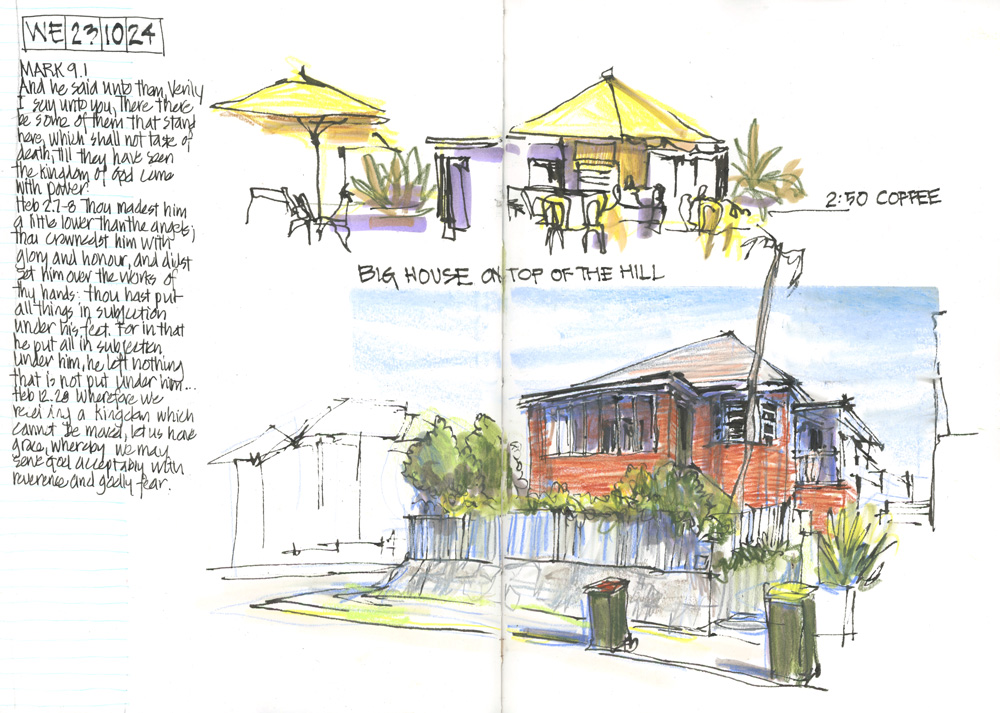 WE 23 10 24
MARK 9.1
And he said unto them, Verily
I say unto you, There there
be some of them that stand
here, which shall not taste of
death, till they have seen
the kingdom of God come
with power.
Heb 2.7-8 Thou madest him
a little lower than the angels;
thou crownedst him with
glory and honour, and didst
set him over the works of
thy hands: thou hast put
all things in subjection
under his feet. For in that
he put all in subjection
under him, he left nothing
that is not put under him...
Heb 12.28 Wherefore we
receiving a kingdom which
cannot be moved, let us have
grace, whereby we may
serve God acceptably with
reverence and godly fear.
2:50 COFFEE
BIG HOUSE ON TOP OF THE HILL